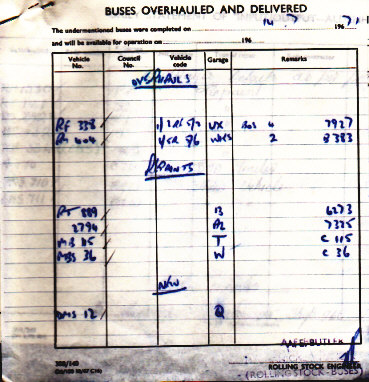 BUSES OVERHAULED AND DELIVERED
The undermentioned buses were completed on 14. 7 1967 71
and will be available for operation on 196
Vehicle No. Council No. Vehicle code Garage Remarks
OVERHAULS
RF 338 1/2RF5/2 UX BOS 4 7927
RM 404 WKS 2 8383
REPAINTS
RT 889 B 6273
2794 AL 7325
MB 115 T C 115
MBS 36 W C 36
NEW
DMS 12 Q
A.F.E. BUTLER
ROLLING STOCK ENGINEER
(ROLLING STOCK - BUSES)